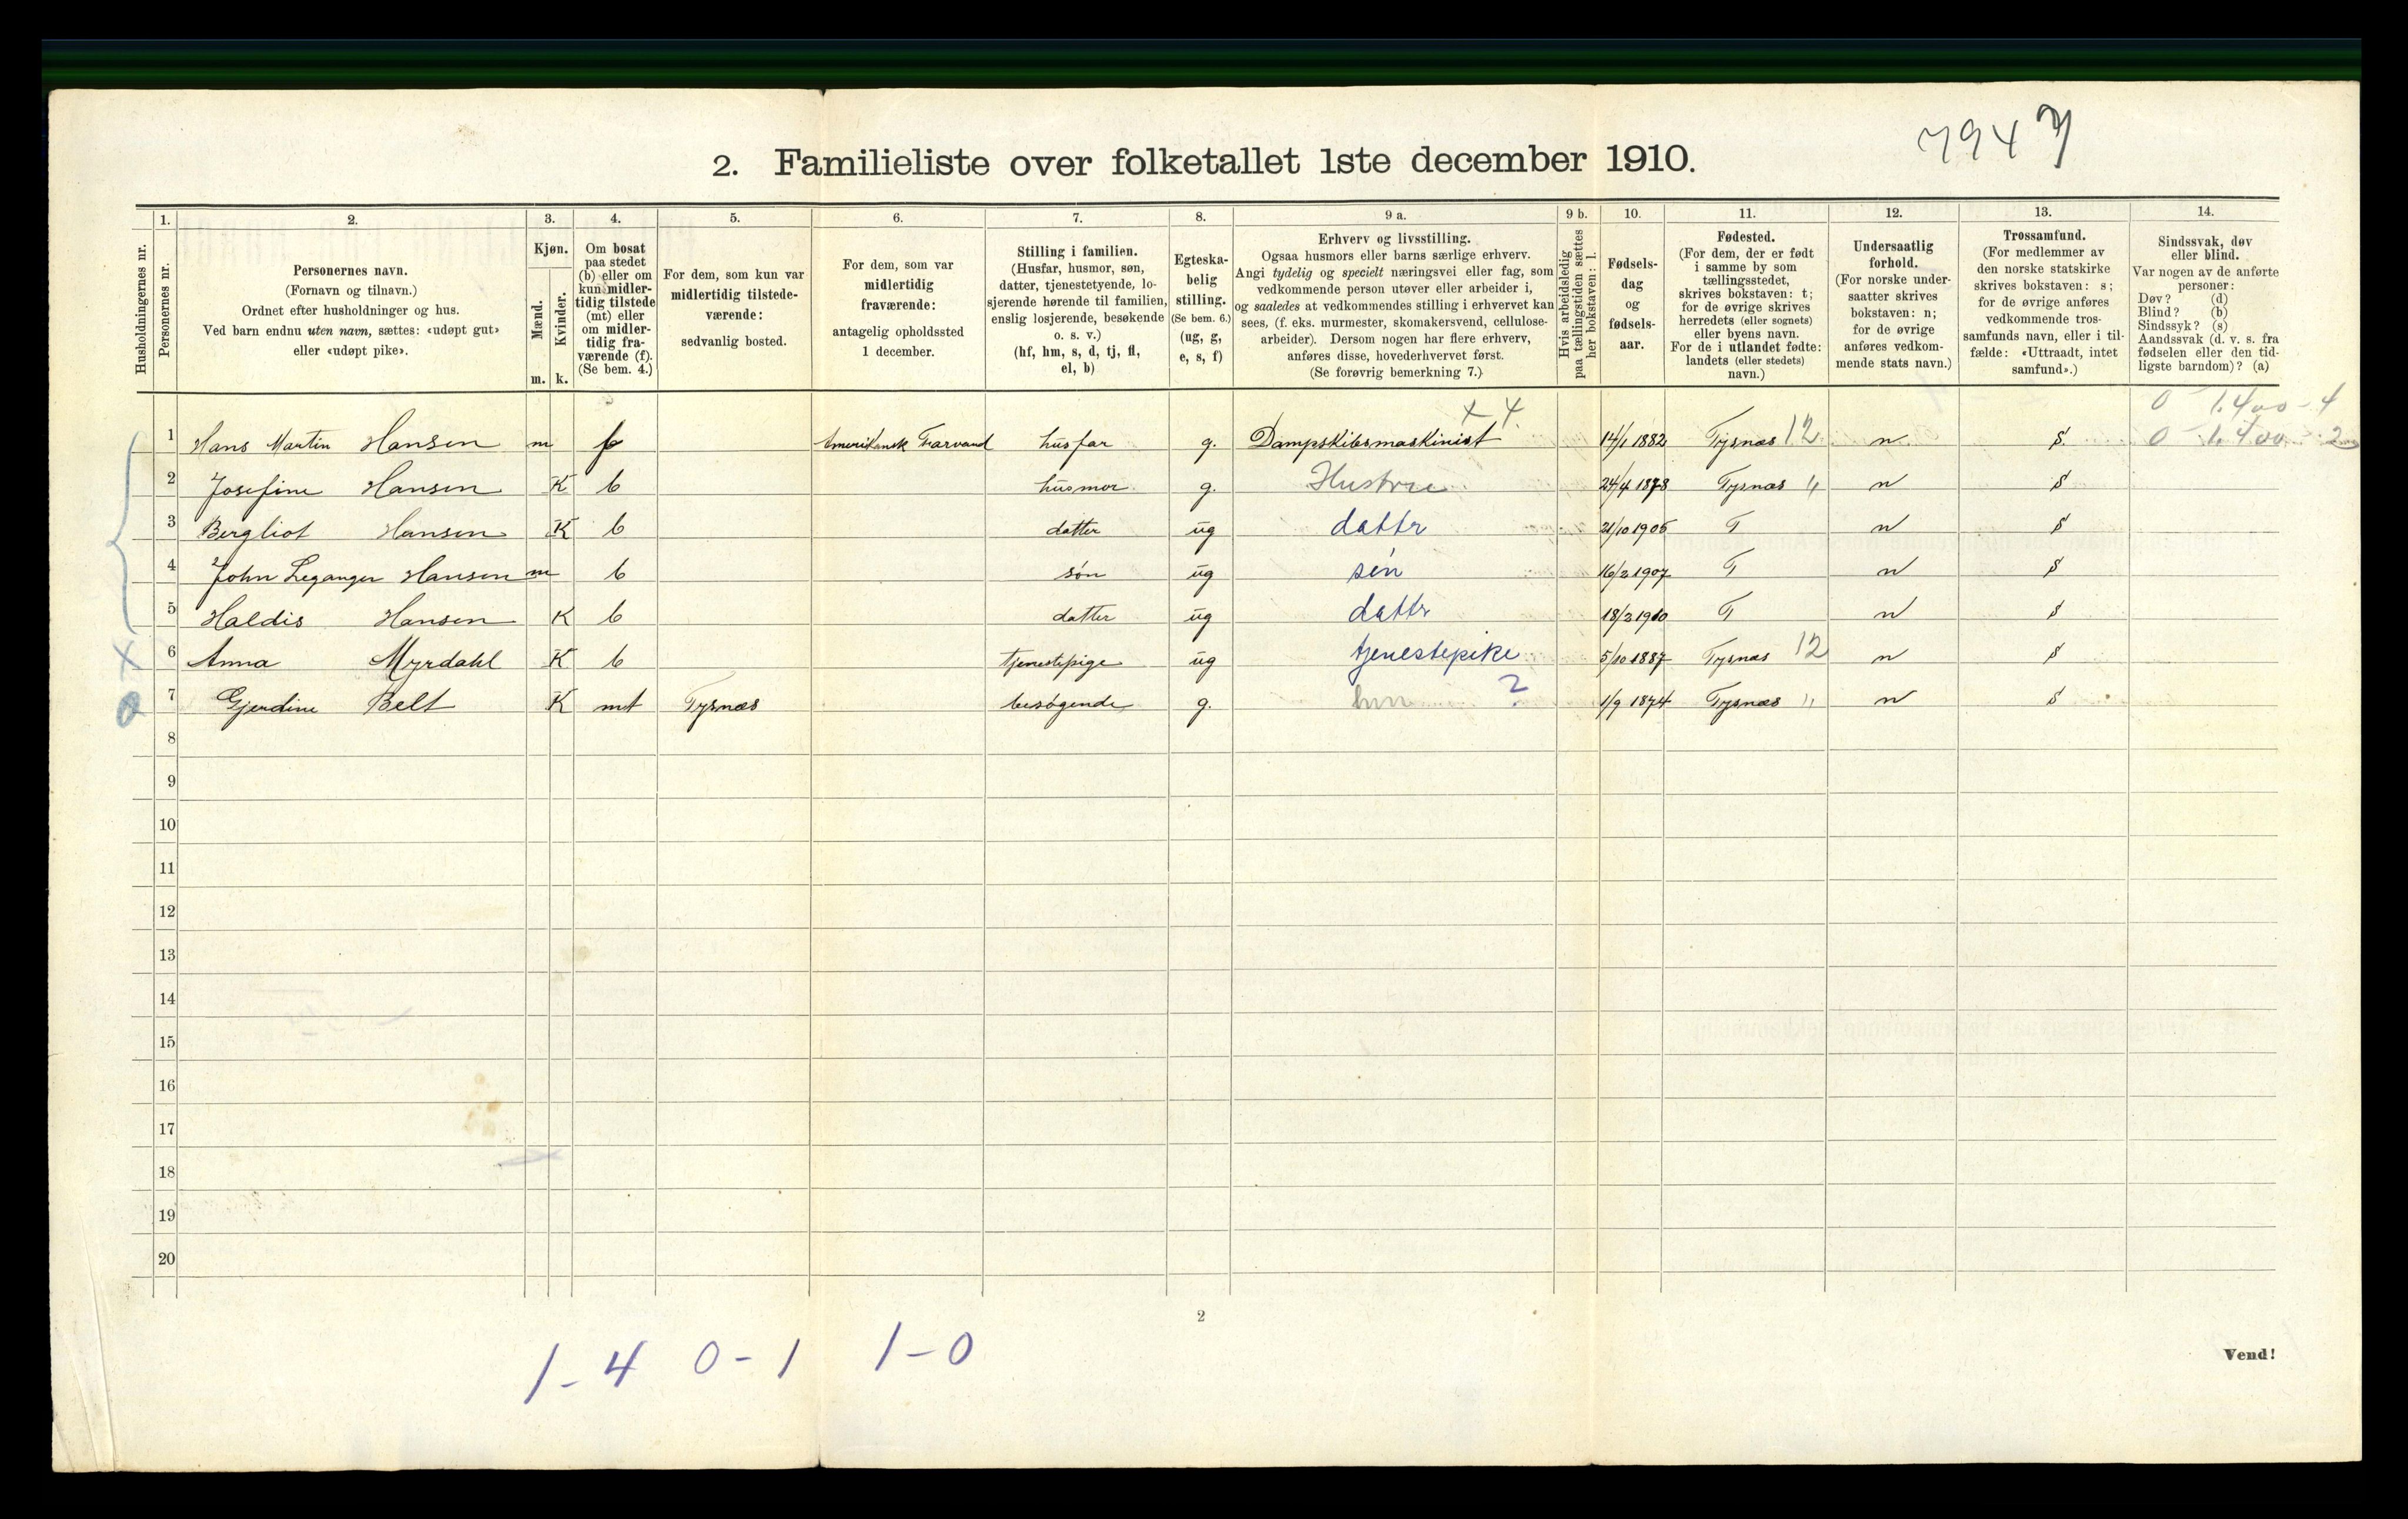 7947
2. Familieliste over folketallet 1ste december 1910.
1. 2. 3. 4. 5. 6. 7. 8. 9 a. 9 b. 10. 11. 12. 13. 14.
Husholdningernes nr.
Personernes nr.
Personernes navn.
(Fornavn og tilnavn.)
Ordnet efter husholdninger og hus.
Ved barn endnu uten navn, sættes: «udøpt gut»
eller «udøpt pike».
Kjøn.
Mænd.
Kvinder.
m. k.
Om bosat
paa stedet
(b) eller om
kun midler-
tidig tilstede
(mt) eller
om midler-
tidig fra-
værende (f).
(Se bem. 4.)
For dem, som kun var
midlertidig tilstede-
værende:
sedvanlig bosted.
For dem, som var
midlertidig
fraværende:
antagelig opholdssted
1 december.
Stilling i familien.
(Husfar, husmor, søn,
datter, tjenestetyende, lo-
sjerende hørende til familien,
enslig losjerende, besøkende
o. s. v.)
(hf, hm, s, d, tj, fl,
el, b)
Egteska-
belig
stilling.
(Se bem. 6.)
(ug, g,
e, s, f)
Erhverv og livsstilling.
Ogsaa husmors eller barns særlige erhverv.
Angi tydelig og specielt næringsvei eller fag, som
vedkommende person utøver eller arbeider i,
og saaledes at vedkommendes stilling i erhvervet kan
sees, (f. eks. murmester, skomakersvend, cellulose-
arbeider). Dersom nogen har flere erhverv,
anføres disse, hovederhvervet først.
(Se forøvrig bemerkning 7.)
Hvis arbeidsledig
paa tællingstiden sættes
her bokstaven: l.
Fødsels-
dag
og
fødsels-
aar.
Fødested.
(For dem, der er født
i samme by som
tællingsstedet,
skrives bokstaven: t;
for de øvrige skrives
herredets (eller sognets)
eller byens navn.
For de i utlandet fødte:
landets (eller stedets)
navn.)
Undersaatlig
forhold.
(For norske under-
saatter skrives
bokstaven: n;
for de øvrige
anføres vedkom-
mende stats navn.)
Trossamfund.
(For medlemmer av
den norske statskirke
skrives bokstaven: s;
for de øvrige anføres
vedkommende tros-
samfunds navn, eller i til-
fælde: «Uttraadt, intet
samfund».)
Sindssvak, døv
eller blind.
Var nogen av de anførte
personer:
Døv? (d)
Blind? (b)
Sindssyk? (s)
Aandssvak (d. v. s. fra
fødselen eller den tid-
ligste barndom)? (a)
x 4. 0 1.400 - 4
1 Hans Martin Hansen m f Amerikansk Farvand husfar g. Dampskibsmaskinist 14/1 1882 Tysnæs 12 n. s. 0 1.400 2
2 Josefine Hansen K b husmor g. Hustru 24/4 1878 Tysnæs " n s
3 Bergliot Hansen K b datter ug dattr 21/10 1905 T n s
4 John Leganger Hansen m b søn ug sön 16/2 1907 T n s
5 Haldis Hansen K b datter ug dattr 18/2 1910 T n s
x 6 Anna Myrdahl K b Tjenestepige ug tjenestepike 5/10 1887 Tysnæs 12 n s
0 7 Gjerdine Belt K mt Tysnæs besøgende g. hm ? 1/9 1874 Tysnæs " n s
8
9
10
11
12
13
14
15
16
17
18
19
20
2
1 - 4 0 - 1 1 - 0
Vend!